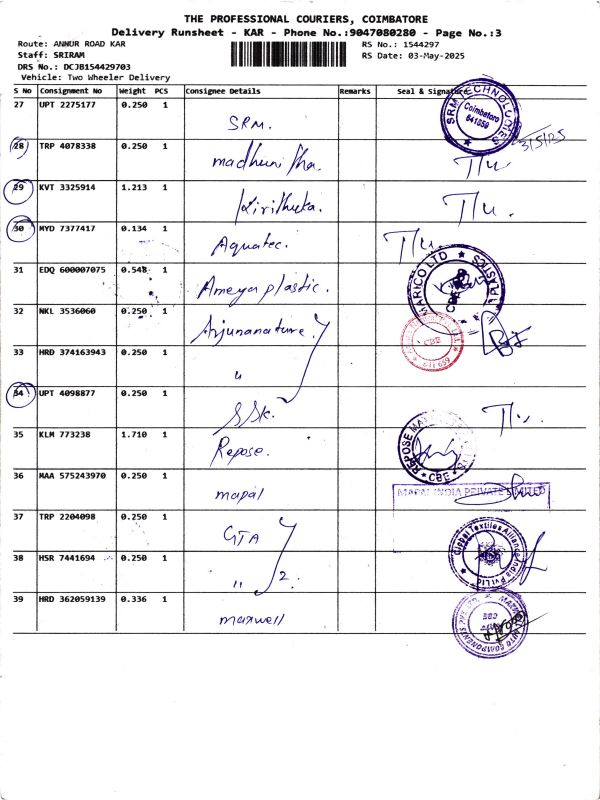 THE PROFESSIONAL COURIERS, COIMBATORE
Delivery Runsheet - KAR - Phone No.:9047080280 - Page No.:3
Route: ANNUR ROAD KAR RS No.: 1544297
Staff: SRIRAM RS Date: 03-May-2025
DRS No.: DCJB154429703
Vehicle: Two Wheeler Delivery
S No Consignment No Weight PCS Consignee Details Remarks Seal & Signature
27 UPT 2275177 0.250 1 SRM. SRM TECHNOLOGIES Coimbatore 641059
3/5/25
28 TRP 4078338 0.250 1
29 KVT 3325914 1.213 1 Kirithika.
30 MYD 7377417 0.134 1 Aquatec.
31 EDQ 600007075 0.548 1 Ameya plastic. MARICO LTD
32 NKL 3536060 0.250 1 Arjunanature. CBE
33 HRD 374163943 0.250 1 "
34 UPT 4098877 0.250 1 SSK.
35 KLM 773238 1.710 1 Repose. REPOSE CBE
36 MAA 575243970 0.250 1 mapal MAPAL INDIA PRIVATE LIMITED
37 TRP 2204098 0.250 1 GTA Global Textiles Alliance India Pvt Ltd
38 HSR 7441694 0.250 1 " 2.
39 HRD 362059139 0.336 1 maxwell COMPONENTS CBE